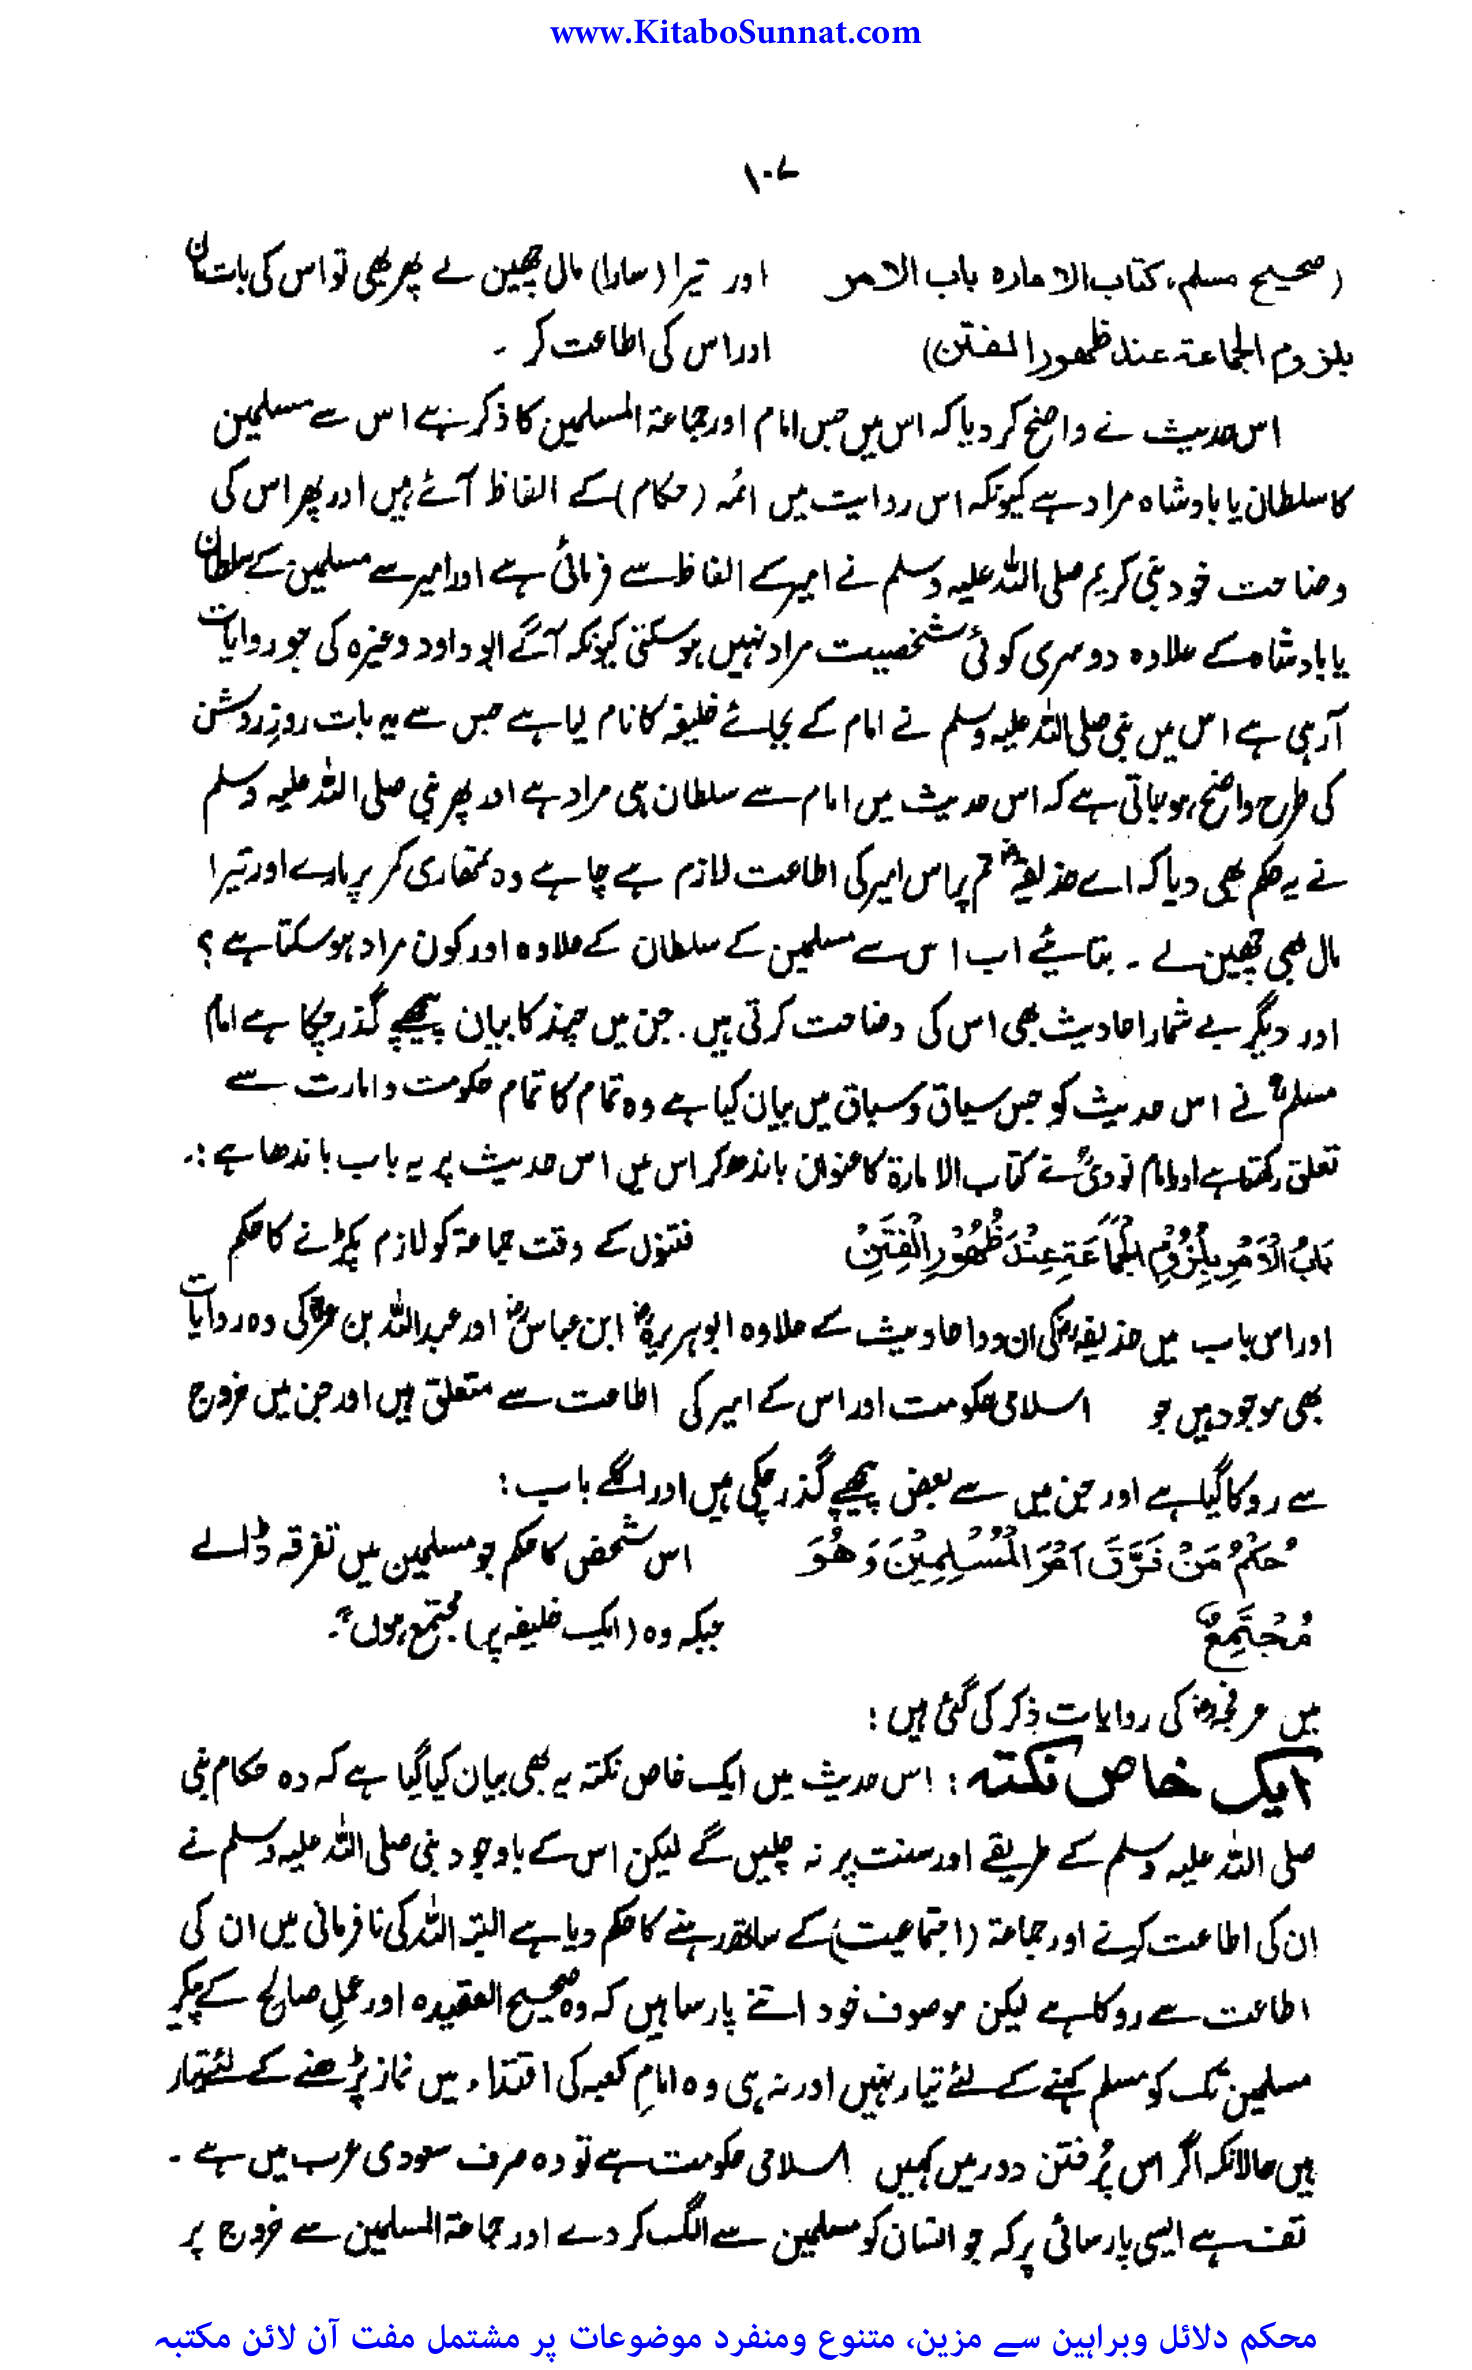 www.KitaboSunnat.com
۱۰۷
(صحیح مسلم، کتاب الامارہ باب الامر اور تیرا (سارا) مال چھین لے پھر بھی تو اس کی بات مان
بلزوم الجماعۃ عند ظہور الفتن) اور اس کی اطاعت کر ۔
اس حدیث نے واضح کر دیا کہ اس میں جس امام اور جماعۃ المسلمین کا ذکر ہے اس سے مسلمین
کا سلطان یا بادشاہ مراد ہے کیونکہ اس روایت میں ائمہ (حکام) کے الفاظ آئے ہیں اور پھر اس کی
وضاحت خود نبی کریم صلی اللہ علیہ وسلم نے امیر کے الفاظ سے فرمائی ہے اور امیر سے مسلمین کے سلطان
یا بادشاہ کے علاوہ دوسری کوئی شخصیت مراد نہیں ہو سکتی کیونکہ آگے ابو داود وغیرہ کی جو روایات
آرہی ہے اس میں نبی صلی اللہ علیہ وسلم نے امام کے بجائے خلیفہ کا نام لیا ہے جس سے یہ بات روزِ روشن
کی طرح واضح ہو جاتی ہے کہ اس حدیث میں امام سے سلطان ہی مراد ہے اور پھر نبی صلی اللہ علیہ وسلم
نے یہ حکم بھی دیا کہ اے حذیفہؓ تم پر اس امیر کی اطاعت لازم ہے چاہے وہ تمھاری کمر پر مارے اور تیرا
مال بھی چھین لے ۔ بتائیے اب اس سے مسلمین کے سلطان کے علاوہ اور کون مراد ہو سکتا ہے ؟
اور دیگر بے شمار احادیث بھی اس کی وضاحت کرتی ہیں ۔ جن میں چند کا بیان پیچھے گذر چکا ہے امام
مسلمؒ نے اس حدیث کو جس سیاق و سباق میں بیان کیا ہے وہ تمام کا تمام حکومت و امارت سے
تعلق رکھتا ہے اور امام نوویؒ نے کتاب الامارۃ کا عنوان باندھ کر اس میں اس حدیث پر یہ باب باندھا ہے :۔
بَابُ الْاَمْرِ بِلُزُوْمِ الْجَمَاعَةِ عِنْدَ ظُهُوْرِ الْفِتَنِ فتنوں کے وقت جماعۃ کو لازم پکڑنے کا حکم
اور اس باب میں حذیفہؓ کی ان دو احادیث کے علاوہ ابو ہریرہؓ ابن عباسؓ اور عبداللہ بن عمرؓ کی وہ روایات
بھی موجود ہیں جو اسلامی حکومت اور اس کے امیر کی اطاعت سے متعلق ہیں اور جن میں خروج
سے روکا گیا ہے اور جن میں سے بعض پیچھے گذر چکی ہیں اور اگلے باب :
حُكْمُ مَنْ فَرَّقَ اَمْرَ الْمُسْلِمِيْنَ وَهُوَ اس شخص کا حکم جو مسلمین میں تفرقہ ڈالے
مُجْتَمِعٌ جبکہ وہ (ایک خلیفہ پر) مجتمع ہوں"۔
میں عرفجہؓ کی روایات ذکر کی گئی ہیں :
ایک خاص نکتہ : اس حدیث میں ایک خاص نکتہ یہ بھی بیان کیا گیا ہے کہ وہ حکام نبی
صلی اللہ علیہ وسلم کے طریقے اور سنت پر نہ چلیں گے لیکن اس کے باوجود نبی صلی اللہ علیہ وسلم نے
ان کی اطاعت کرنے اور جماعۃ (اجتماعیت) کے ساتھ رہنے کا حکم دیا ہے البتہ اللہ کی نافرمانی میں ان کی
اطاعت سے روکا ہے لیکن موصوف خود اتنے پارسا ہیں کہ وہ صحیح العقیدہ اور عملِ صالح کے پیکر
مسلمین تک کو مسلم کہنے کے لئے تیار نہیں اور نہ ہی وہ امامِ کعبہ کی اقتداء میں نماز پڑھنے کے لئے تیار
ہیں حالانکہ اگر اس پُر فتن دور میں کہیں اسلامی حکومت ہے تو وہ صرف سعودی عرب میں ہے ۔
تف ہے ایسی پارسائی پر کہ جو انسان کو مسلمین سے الگ کر دے اور جماعۃ المسلمین سے خروج پر
محکم دلائل وبراہین سے مزین، متنوع ومنفرد موضوعات پر مشتمل مفت آن لائن مکتبہ